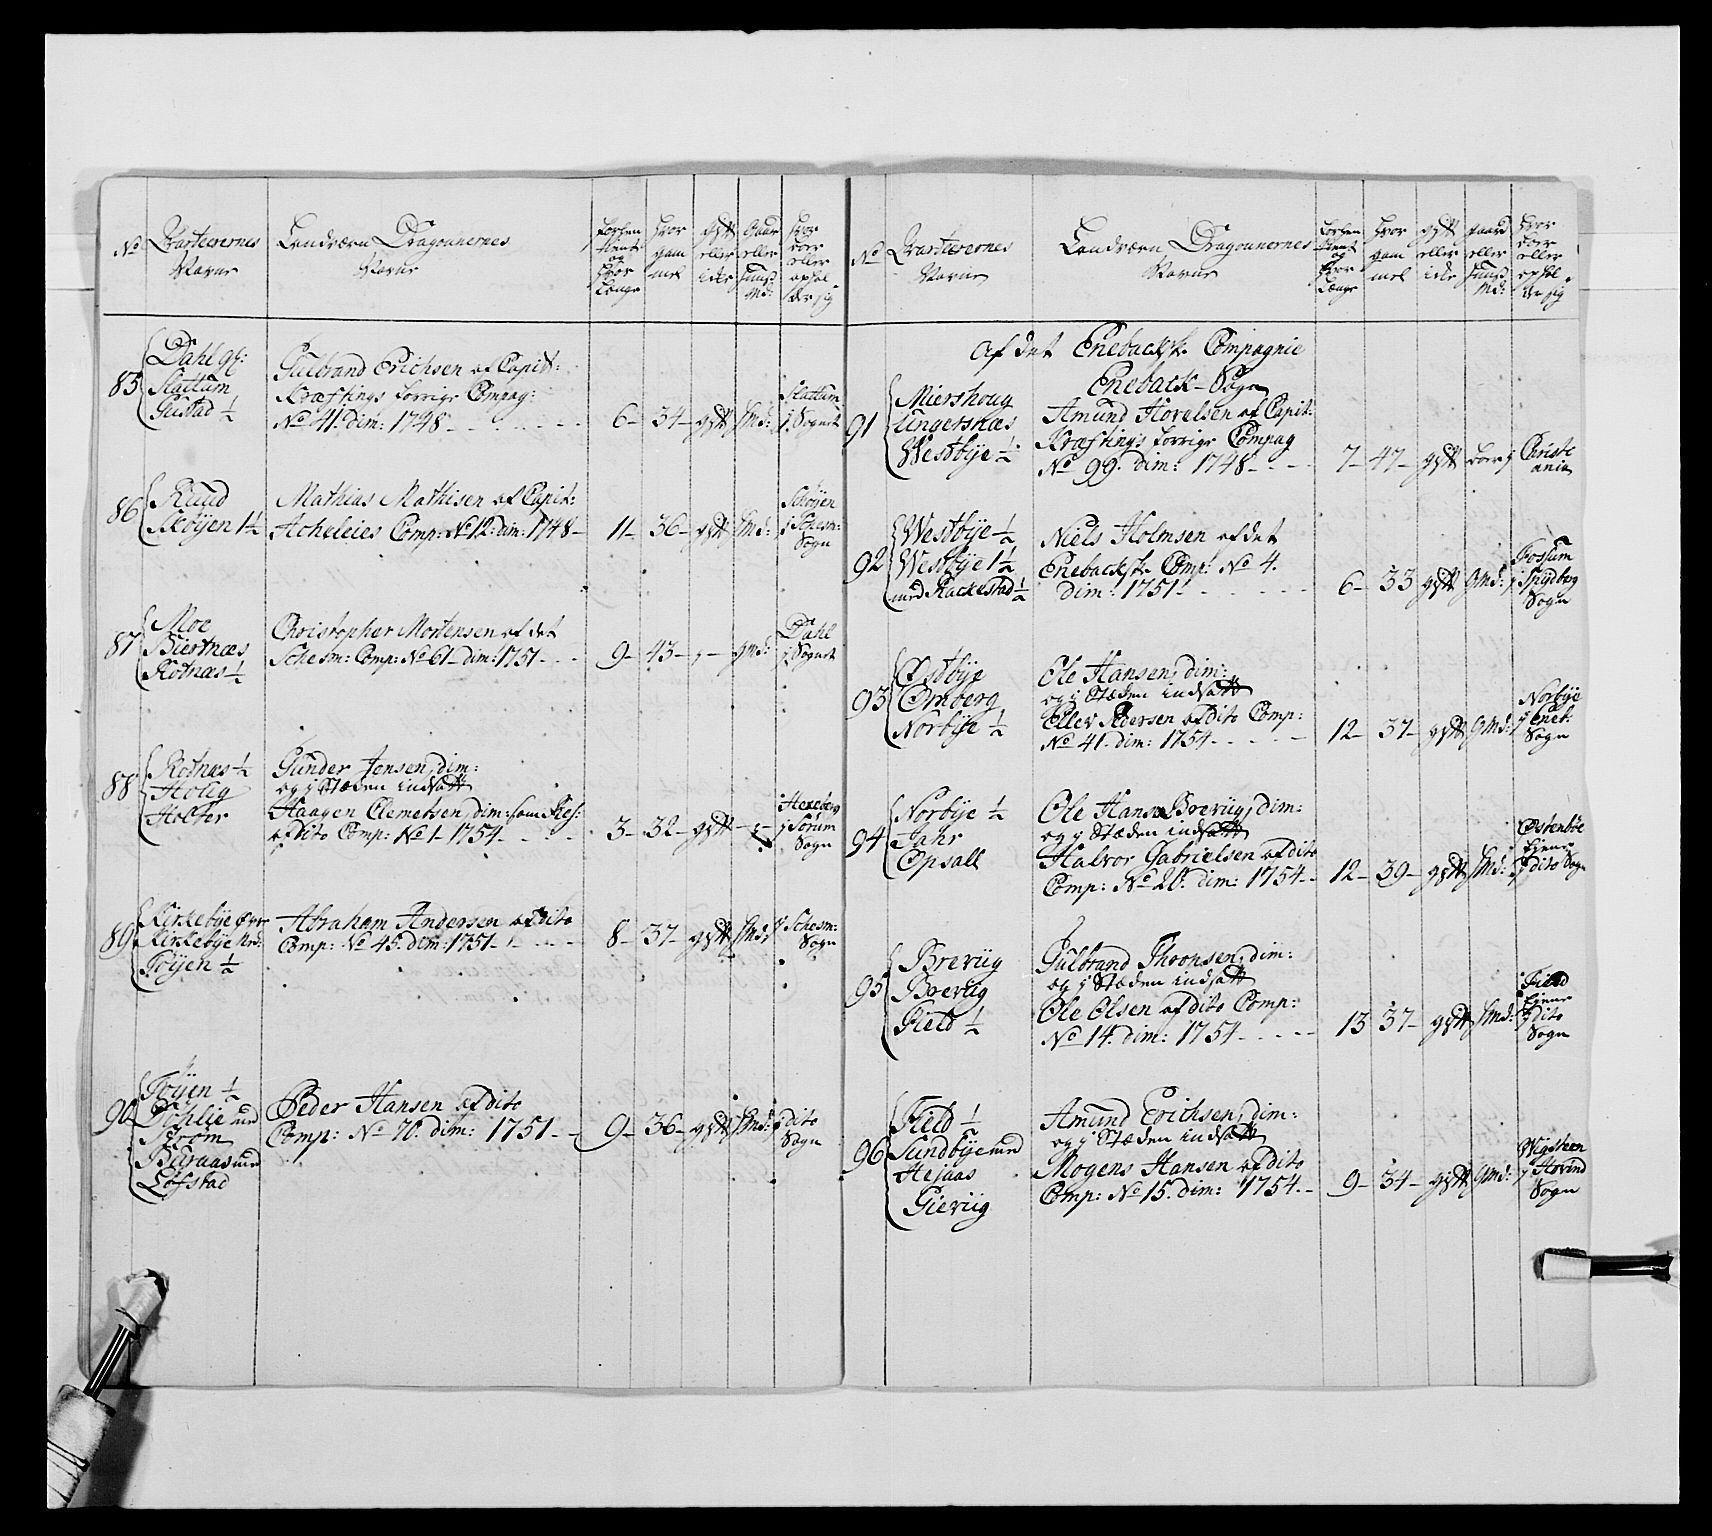 No
Qvarterernes
Navne
Landværn Dragounernes
Navne
Forhen
tient
og
hvor
Længe
hvor
gam
mel
gift
eller
icke
Gaar
eller
huus
Md:
hvor
boer
eller
ophol
der sig
85
Dahl
Slattum
Gustad ½
Gulbrand Erichsen af Capit:
Kræftings forrige Compag:
No 41. dim: 1748
6 34 gift hMd: Slattum
j Sognet
86
Ruud
Skøÿen 1½
Mathias Mathisen af Capit:
Acheleies Comp: No 12: dim: 1748
11 36 gift hMd: Schøÿen
j Schesm:
Sogn
87
Moe
Biertnæs
Rotnæs ½
Christopher Mortensen af det
Schesm: Comp: No 61 dim: 1751
9 43 gMd: Dahl
j Sognet
88
Rotnæs ½
Holter
Gunder Jensen, dim:
og j Stæden indsatt
Haagen Clemetsen, dim: som
af dito Comp: No 1 1754
3 32 gift Hexeberg
j Sørum
Sogn
89
Kirkebÿe
Kirkebÿe
Tøÿen ½
Abraham Andersen af dito
Comp: No 45. dim: 1751
8 37 gift hMd: j Schesm:
Sogn
90
Tøÿen ½
Døhlie med
Strøm
Buraas med
Løfstad
Peder Hansen af dito
Comp: No 70. dim: 1751
9 36 gift hMd: j dito
Sogn
No
Qvarterernes
Navne
Landværn Dragounernes
Navne
Forhen
tient
og
hvor
Længe
hvor
gam
mel
gift
eller
icke
gaard
eller
huus
Md:
hvor
boer
eller
ophol
der sig
Af det Enebacksk. Compagnie
Eneback Sogn
91
Miershoug
Ungersnæs
Westbÿe ½
Amund Hovelsen af Capit:
Kræftings forrige Compag
No 99. dim: 1748
7 47 gift boer j Christi
ania
92
Westbÿe ½
Westbÿe 1½
med Rackestad ½
Niels Holmsen af det
Enebacksk. Comp: No 4.
dim: 1751
6 33 gift GMd: Fossum
j Spydberg
Sogn
93
Østbÿe
Ørnberg
Norbÿe ½
Ole Hansen, dim:
og j Stæden indsatt
Ellev Pedersen af dito Comp:
No 41. dim: 1754
12 37 gift GMd: Norbÿe
j Eneb:
Sogn
94
Norbÿe ½
Jahr
Opsall
Ole Hans: Brevüg, dim:
og j Stæden indsatt
Halvor Gabrielsen af dito
Comp: No 20. dim: 1754
12 39 gift hMd: Østenbøe
Eiene
j dito Sogn
95
Brevüg
Brevüg
Field ½
Gulbrand Thoonsen, dim:
og j Stæden indsatt
Ole Olsen af dito Comp:
No 14. dim: 1754
13 37 gift hMd: Field
Eiene
j dito
Sogn
96
Field ½
Sundbÿe med
Hejaas
Gievüg
Amund Erichsen, dim:
og j Stæden indsatt
Mogens Hansen af dito
Comp: No 15. dim: 1754
9 34 gift GMd: Wigsteen
j Hovind
Sogn